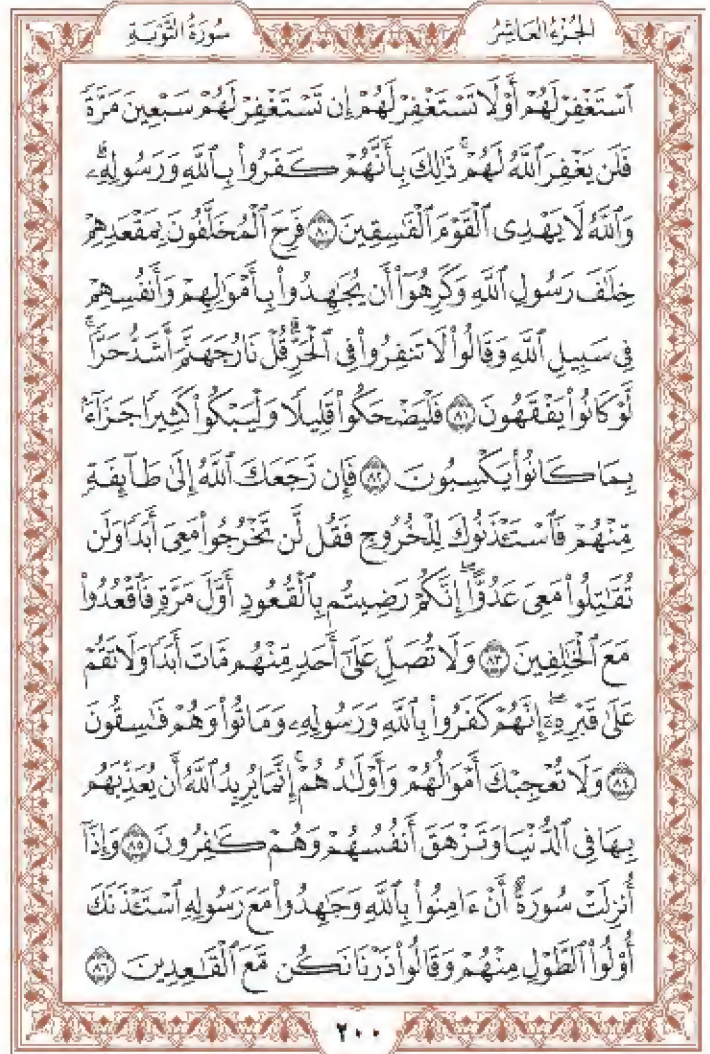 الجُزْءُ العَاشِرُ
سُورَةُ التَّوْبَةِ
ٱسْتَغْفِرْ لَهُمْ أَوْ لَا تَسْتَغْفِرْ لَهُمْ إِن تَسْتَغْفِرْ لَهُمْ سَبْعِينَ مَرَّةً
فَلَن يَغْفِرَ ٱللَّهُ لَهُمْ ۚ ذَٰلِكَ بِأَنَّهُمْ كَفَرُوا۟ بِٱللَّهِ وَرَسُولِهِۦ ۗ
وَٱللَّهُ لَا يَهْدِى ٱلْقَوْمَ ٱلْفَـٰسِقِينَ ۝٨٠ فَرِحَ ٱلْمُخَلَّفُونَ بِمَقْعَدِهِمْ
خِلَـٰفَ رَسُولِ ٱللَّهِ وَكَرِهُوٓا۟ أَن يُجَـٰهِدُوا۟ بِأَمْوَٰلِهِمْ وَأَنفُسِهِمْ
فِى سَبِيلِ ٱللَّهِ وَقَالُوا۟ لَا تَنفِرُوا۟ فِى ٱلْحَرِّ ۗ قُلْ نَارُ جَهَنَّمَ أَشَدُّ حَرًّا ۚ
لَّوْ كَانُوا۟ يَفْقَهُونَ ۝٨١ فَلْيَضْحَكُوا۟ قَلِيلًا وَلْيَبْكُوا۟ كَثِيرًا جَزَآءًۢ
بِمَا كَانُوا۟ يَكْسِبُونَ ۝٨٢ فَإِن رَّجَعَكَ ٱللَّهُ إِلَىٰ طَآئِفَةٍ
مِّنْهُمْ فَٱسْتَـْٔذَنُوكَ لِلْخُرُوجِ فَقُل لَّن تَخْرُجُوا۟ مَعِىَ أَبَدًا وَلَن
تُقَـٰتِلُوا۟ مَعِىَ عَدُوًّا ۖ إِنَّكُمْ رَضِيتُم بِٱلْقُعُودِ أَوَّلَ مَرَّةٍ فَٱقْعُدُوا۟
مَعَ ٱلْخَـٰلِفِينَ ۝٨٣ وَلَا تُصَلِّ عَلَىٰٓ أَحَدٍ مِّنْهُم مَّاتَ أَبَدًا وَلَا تَقُمْ
عَلَىٰ قَبْرِهِۦٓ ۖ إِنَّهُمْ كَفَرُوا۟ بِٱللَّهِ وَرَسُولِهِۦ وَمَاتُوا۟ وَهُمْ فَـٰسِقُونَ
۝٨٤ وَلَا تُعْجِبْكَ أَمْوَٰلُهُمْ وَأَوْلَـٰدُهُمْ ۚ إِنَّمَا يُرِيدُ ٱللَّهُ أَن يُعَذِّبَهُم
بِهَا فِى ٱلدُّنْيَا وَتَزْهَقَ أَنفُسُهُمْ وَهُمْ كَـٰفِرُونَ ۝٨٥ وَإِذَآ
أُنزِلَتْ سُورَةٌ أَنْ ءَامِنُوا۟ بِٱللَّهِ وَجَـٰهِدُوا۟ مَعَ رَسُولِهِ ٱسْتَـْٔذَنَكَ
أُو۟لُوا۟ ٱلطَّوْلِ مِنْهُمْ وَقَالُوا۟ ذَرْنَا نَكُن مَّعَ ٱلْقَـٰعِدِينَ ۝٨٦
٢٠٠